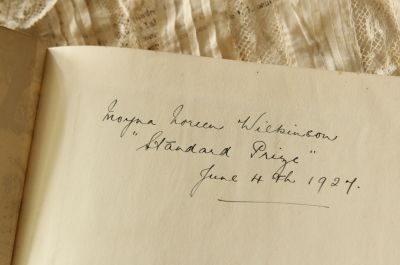 Moyna Noreen Wilkinson
"Standard Prize"
June 4th 1927.